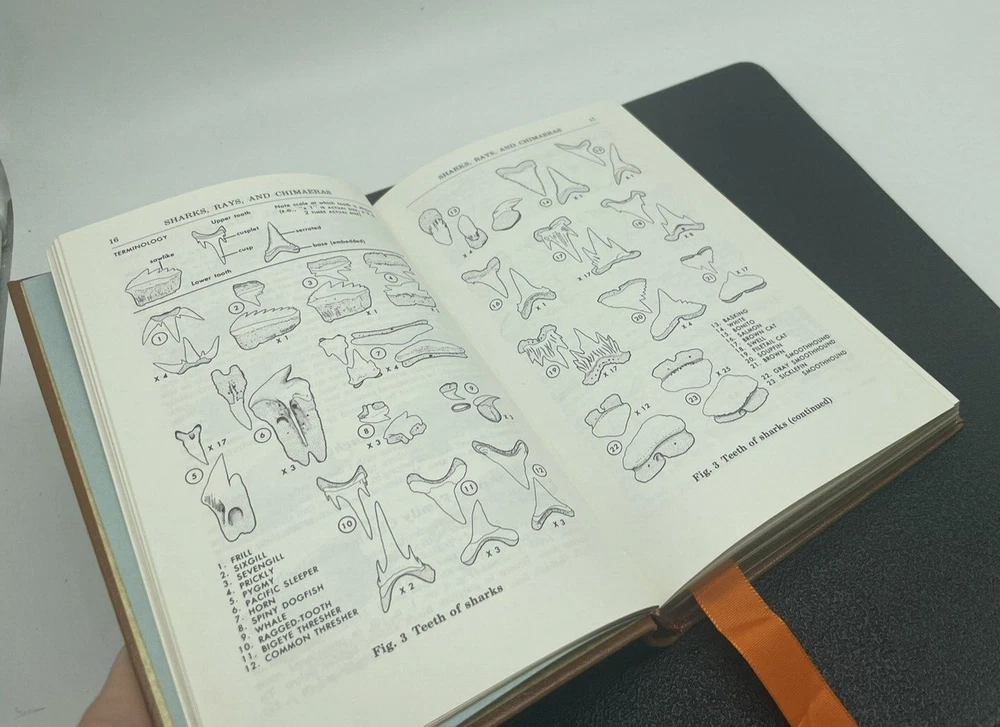 16
SHARKS, RAYS, AND CHIMAERAS
TERMINOLOGY
Upper tooth
Note scale at which tooth is
cusplet
serrated
sawlike
cusp
base (embedded)
Lower tooth
1
X 4
2
X 1
3
X 1
7
X 4
5
X 17
6
X 3
8
X 3
9
10
X 2
11
X 3
12
X 3
1. FRILL
2. SIXGILL
3. SEVENGILL
4. PRICKLY
5. PYGMY
6. PACIFIC SLEEPER
7. HORN
8. SPINY DOGFISH
9. WHALE
10. RAGGED-TOOTH
11. BIGEYE THRESHER
12. COMMON THRESHER
Fig. 3 Teeth of sharks
SHARKS, RAYS, AND CHIMAERAS
X 17
16
X 1
20
X 4
21
X 17
19
X 17
22
X 12
23
X 25
13. BASKING
14. WHITE
15. BONITO
16. SALMON
17. BROWN CAT
18. SWELL
19. FILETAIL CAT
20. SOUPFIN
21. BROWN SMOOTHHOUND
22. GRAY SMOOTHHOUND
23. SICKLEFIN SMOOTHHOUND
Fig. 3 Teeth of sharks (continued)